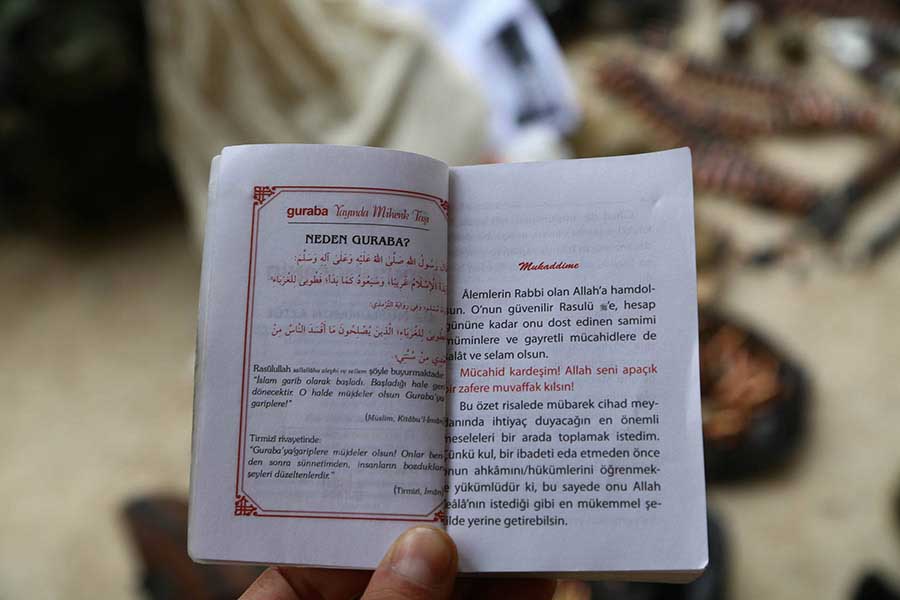 guraba Yayında Mihenk Taşı
NEDEN GURABA?
قَالَ رَسُولُ اللهِ صَلَّى اللهُ عَلَيْهِ وَعَلَى آلِهِ وَسَلَّمَ:
بَدَأَ الْإِسْلَامُ غَرِيبًا، وَسَيَعُودُ كَمَا بَدَأَ، فَطُوبَى لِلْغُرَبَاءِ
وَفِي رِوَايَةِ التِّرْمِذِي:
فَطُوبَى لِلْغُرَبَاءِ؛ الَّذِينَ يُصْلِحُونَ مَا أَفْسَدَ النَّاسُ مِنْ
بَعْدِي مِنْ سُنَّتِي.
Rasûlullah sallallâhu aleyhi ve sellem şöyle buyurmaktadır:
"İslam garib olarak başladı. Başladığı hale geri
dönecektir. O halde müjdeler olsun Guraba'ya
gariplere!"
(Müslim, Kitâbu'l-İman)
Tirmizî rivayetinde:
"Guraba'ya/gariplere müjdeler olsun! Onlar ben-
den sonra sünnetimden, insanların bozdukları
şeyleri düzeltenlerdir."
(Tirmizî, İman)
Mukaddime
Âlemlerin Rabbi olan Allah'a hamdol-
sun. O'nun güvenilir Rasulü ﷺ'e, hesap
gününe kadar onu dost edinen samimi
müminlere ve gayretli mücahidlere de
salât ve selam olsun.
Mücahid kardeşim! Allah seni apaçık
bir zafere muvaffak kılsın!
Bu özet risalede mübarek cihad mey-
danında ihtiyaç duyacağın en önemli
meseleleri bir arada toplamak istedim.
Çünkü kul, bir ibadeti eda etmeden önce
onun ahkâmını/hükümlerini öğrenmek-
le yükümlüdür ki, bu sayede onu Allah
Teâlâ'nın istediği gibi en mükemmel şe-
kilde yerine getirebilsin.